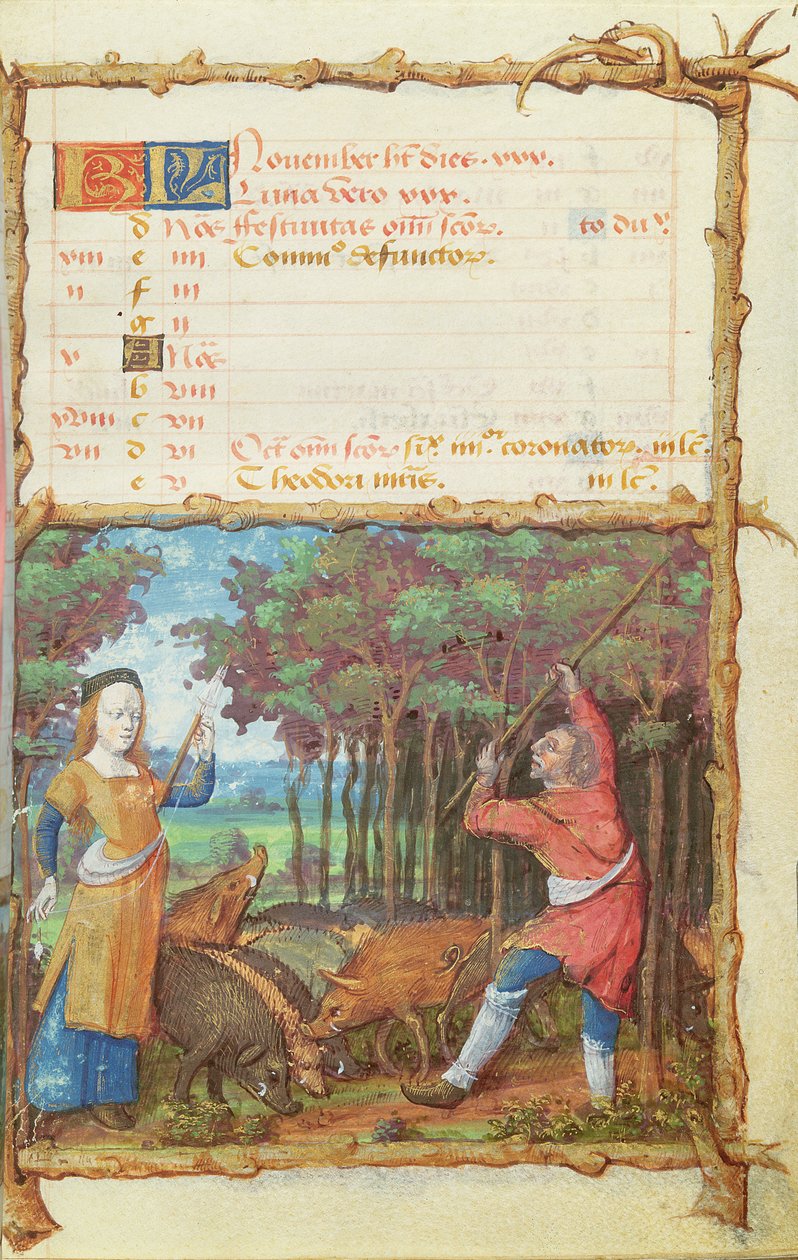 KL Nouember ht dies. xxx.
Luna vero xxx.
d Nōs ffestiuitas oīm scōr. to du.
viii e iiii Commº defunctor.
ii f iii
g ii
v A Nōs
b viii
xviii c vii
vii d vi Oct oīm scōr iiiiᵒʳ coronator. iii lc̄.
e v Theodori mr̄is. iii lc̄.